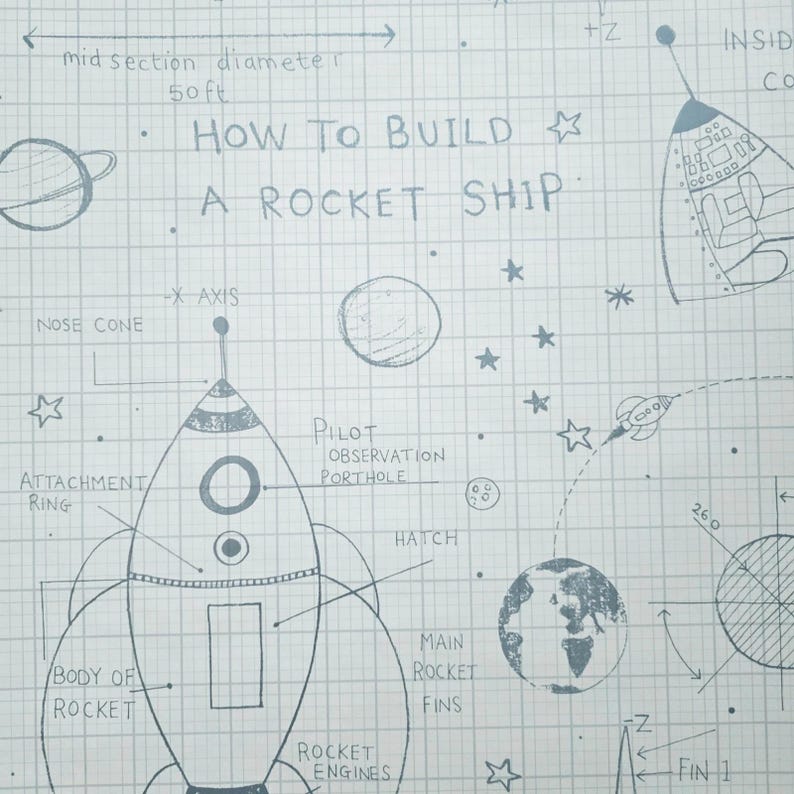 mid section diameter
50ft
+Z
INSID
CO
HOW TO BUILD
A ROCKET SHIP
-X AXIS
NOSE CONE
PILOT
OBSERVATION
PORTHOLE
ATTACHMENT
RING
HATCH
260
MAIN
ROCKET
FINS
BODY OF
ROCKET
-Z
ROCKET
ENGINES
FIN 1